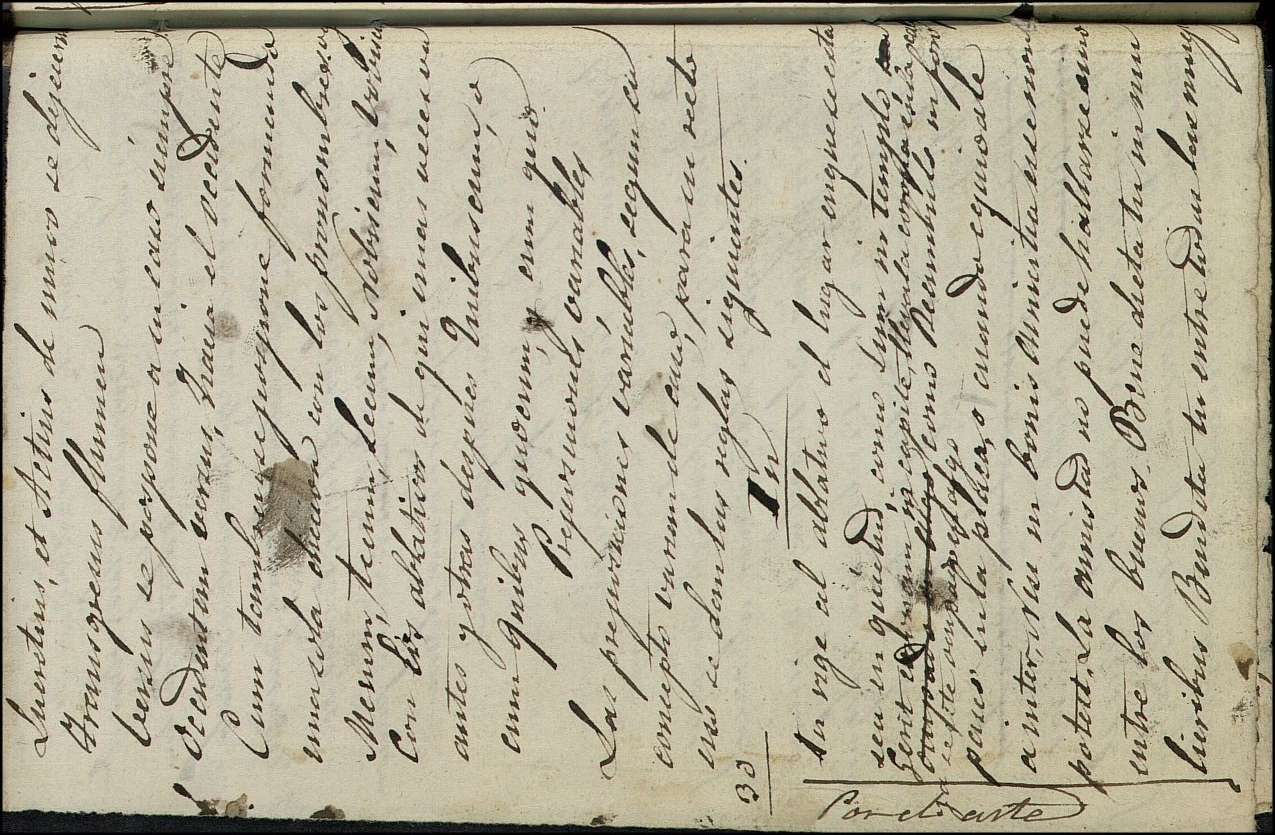 Lucretius, et Actius de muro se dejicerunt
Transgressus flumen
Versus se pospone a su caso siempre
Occidentem versus, hacia el occidente
Cum tambien se pospone formando
una sola diccion con los pronombres, y
Mecum, tecum, secum, nobiscum, vobiscum
Con los ablativos de qui unas veces va
antes y otras despues Quibuscum, o
cum quibus quocum, y cum quo.
Preposiciones variables
Las preposiciones variables, segun su
concepto varian de caso, para su recto
uso se dan las reglas siguientes.
30
In
In rige al ablativo el lugar en que esta
seu in quietud, como sum in templo
Gerit coronam in capite, lleva la corona en la cabeza
como Deambulo in foro
se este en, o en algo
paseo en la plaza, o cuando equivale
a inter, v.g. Nisi in bonis amicitia esse non
potest. La amistad no puede hallarse sino
entre los buenos. Benedicta tu in mu
lieribus Bendita tu entre todas las mug
Por el arte